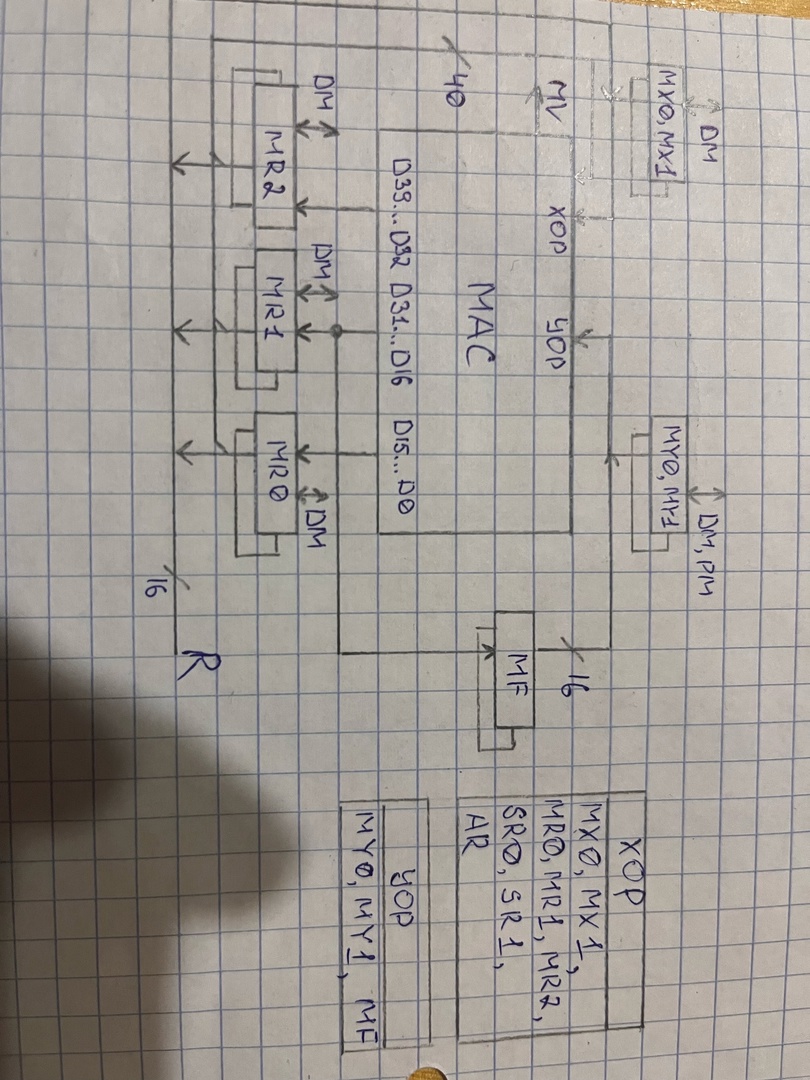 MX0, MX1
DM
MY0, MY1
DM, PM
MV
XOP
YOP
MAC
D39...D32
D31...D16
D15...D0
40
16
MF
DM
MR2
DM
MR1
MR0
DM
16
R
XOP
MX0, MX1,
MR0, MR1, MR2,
SR0, SR1,
AR
YOP
MY0, MY1, MF